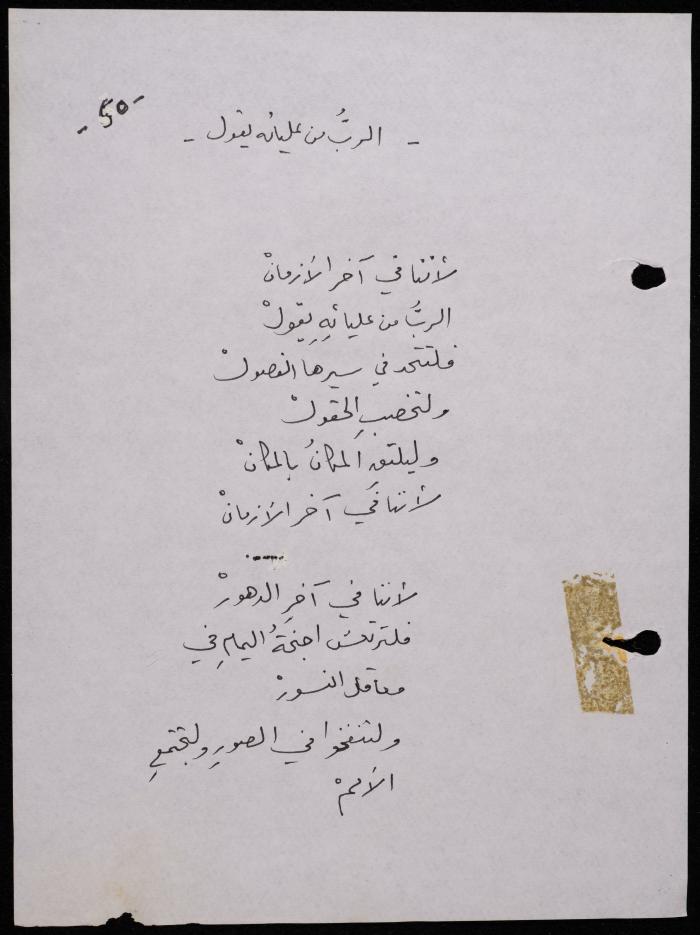 -٥٥-
- الربُّ من عليائه يقول -
لأننا في آخر الأزمانْ
الربُّ من عليائِهِ يقولْ
فلتتحد في سيرها الفصولْ
ولتخصبِ الحقولْ
وليلتقِ المكانُ بالمكانْ
لأننا في آخر الأزمانْ
لأننا في آخرِ الدهورْ
فلترتعش اجنحةُ اليمامِ في
معاقل النسورْ
ولتنفخوا في الصورِ ولتجتمعِ
الأممْ